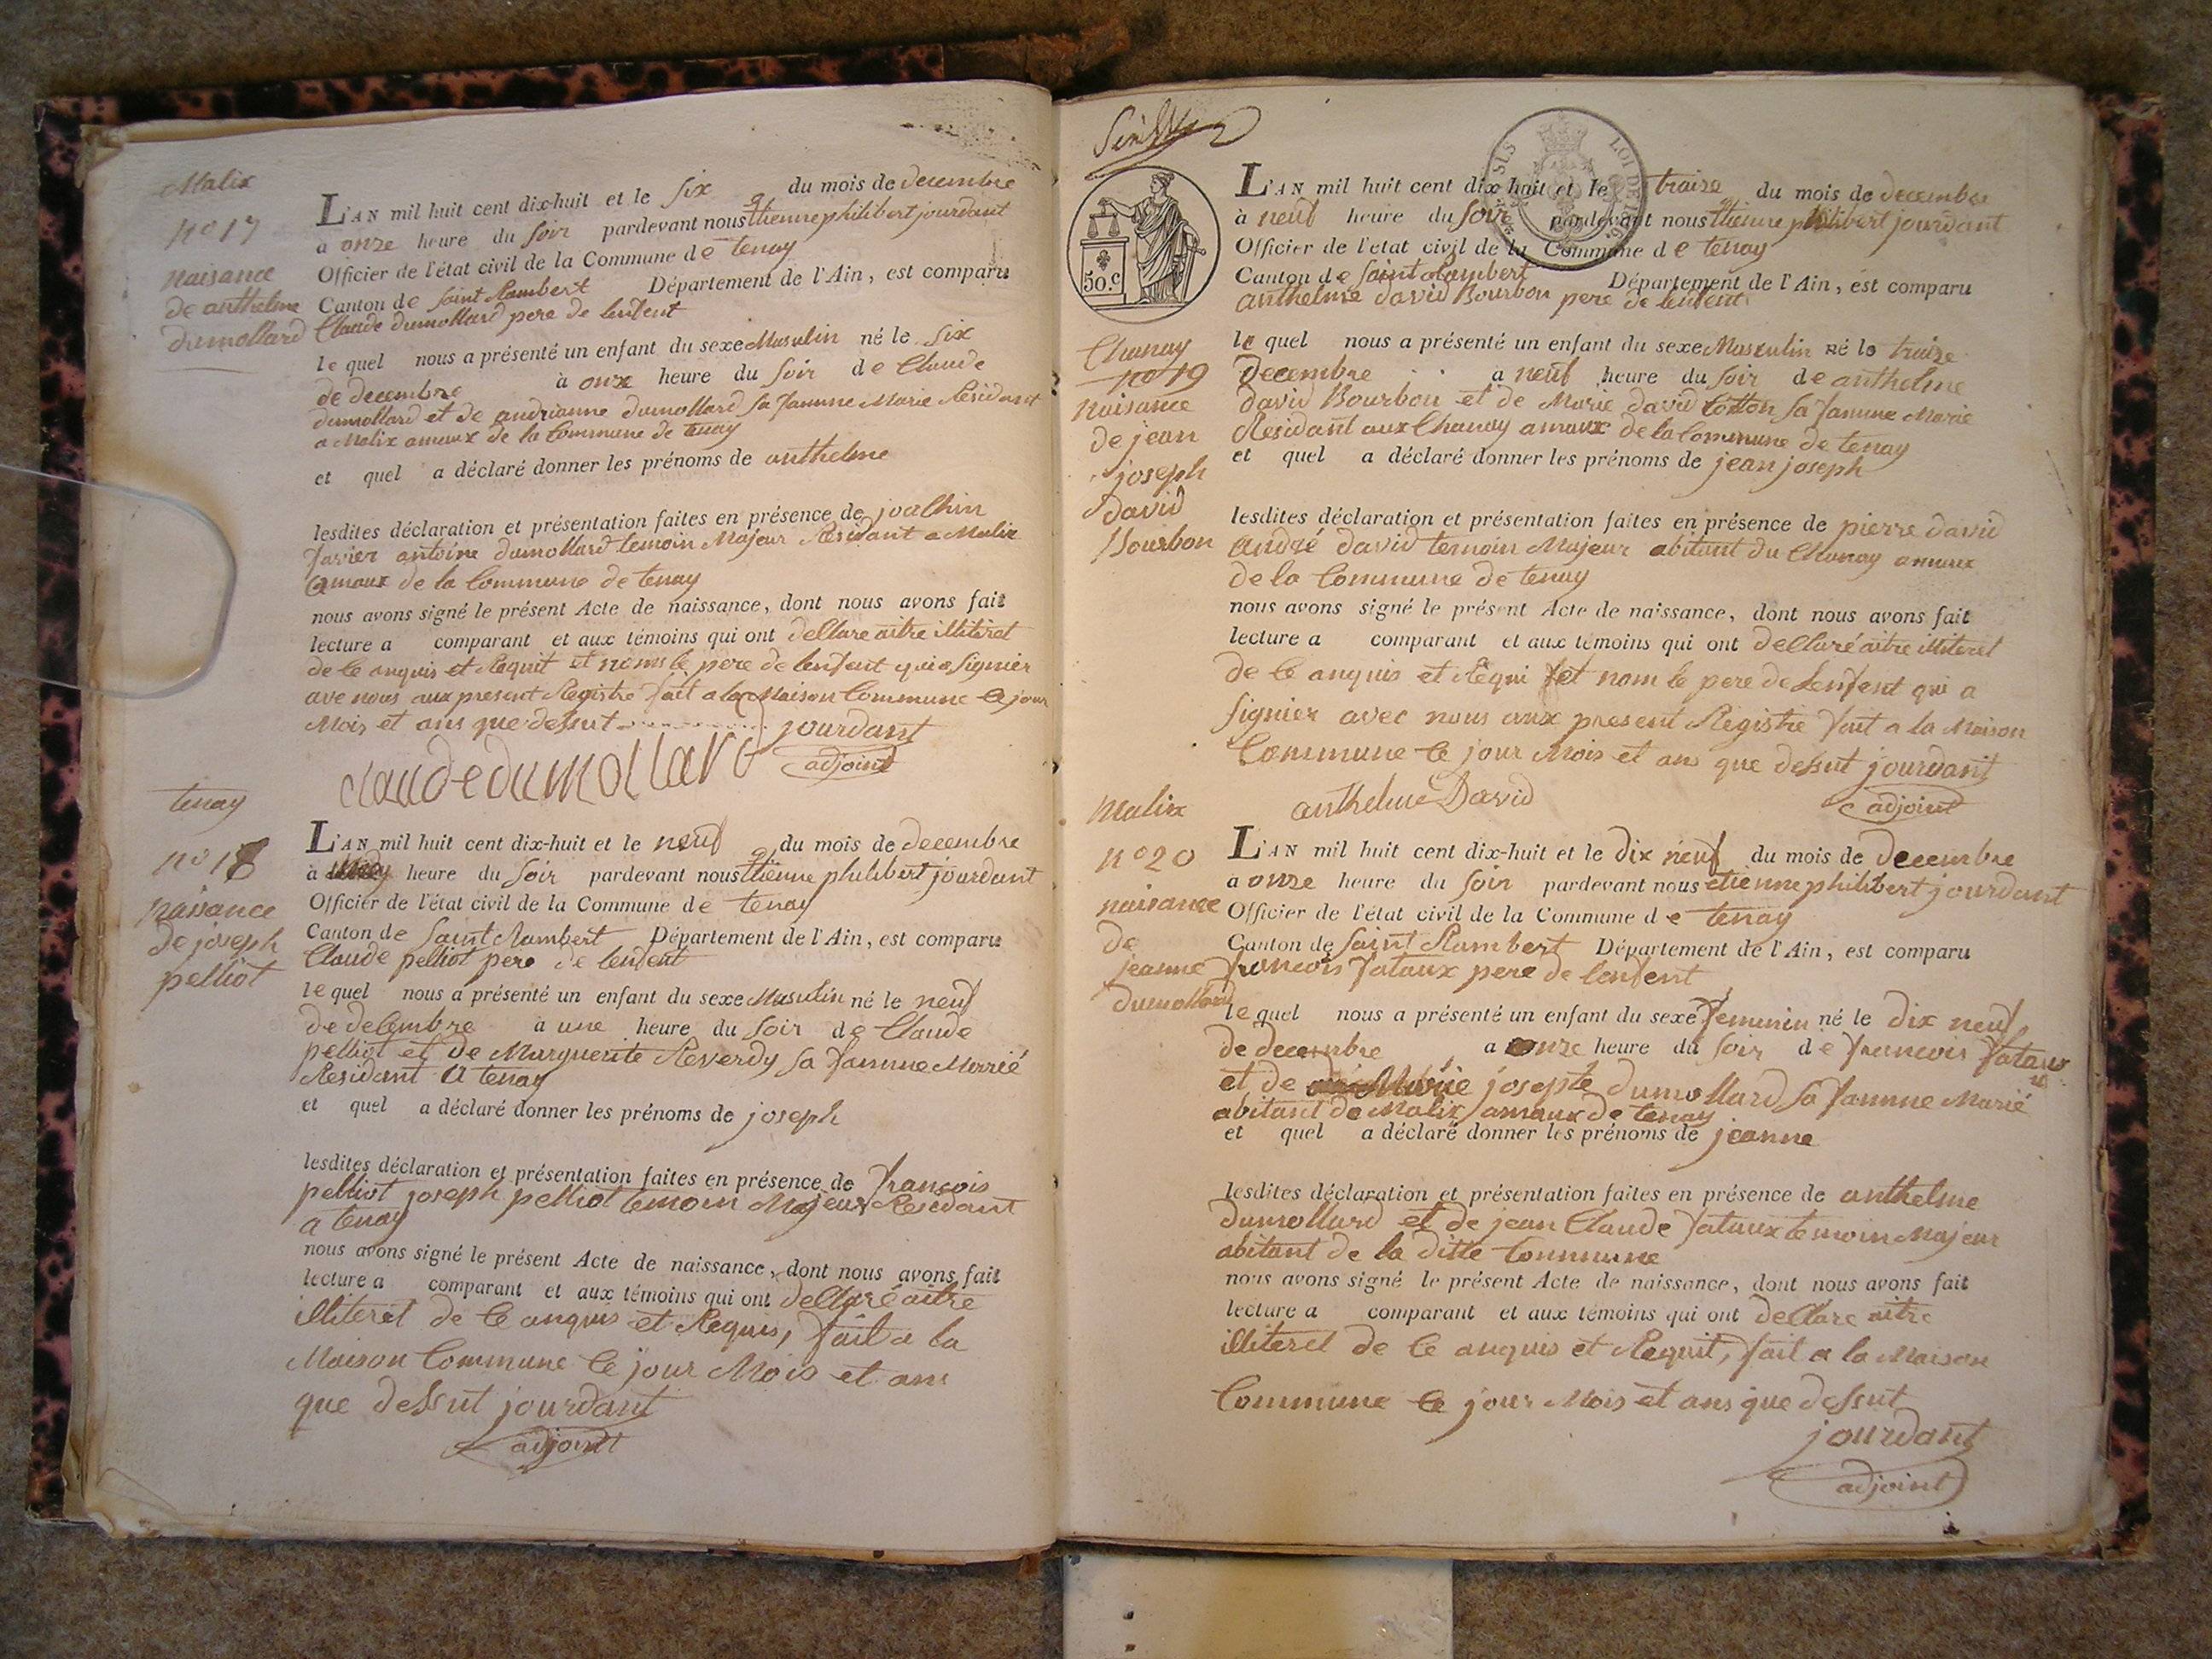 Malix
n° 17
naisance
de anthelme
dumollard
L'AN mil huit cent dix-huit et le six du mois de decembre
à onze heure du soir pardevant nous etienne philibert jourdant
Officier de l'état civil de la Commune de tenay
Canton de saint Rambert Département de l'Ain, est comparu
Claude dumollard pere de lenfent
lequel nous a présenté un enfant du sexe Masculin né le six
de decembre à onze heure du soir de Claude
dumollard et de andrianne dumollard sa famme Marie Residant
a Malix amaux de la Commune de tenay
et quel a déclaré donner les prénoms de anthelme
lesdites déclaration et présentation faites en présence de joachin
favier antoine dumollard temoin Majeur Residant a Malix
amaux de la Commune de tenay
nous avons signé le présent Acte de naissance, dont nous avons fait
lecture a comparant et aux témoins qui ont dellare aitre illiteret
de ce anquis et Requit et noms le pere de lenfent qui a signier
ave nous aux present Registre fait a la Maison Commune le jour
Mois et ans que dessut jourdant
adjoint
claude dumollard
tenay
n° 18
naissance
de joseph
pelliot
L'AN mil huit cent dix-huit et le neuf du mois de decembre
à heure du soir pardevant nous etienne philibert jourdant
Officier de l'état civil de la Commune de tenay
Canton de saint Rambert Département de l'Ain, est comparu
Claude pelliot pere de lenfent
lequel nous a présenté un enfant du sexe Masculin né le neuf
de decembre à une heure du soir de Claude
pelliot et de Marguerite Reverdy sa famme Marrié
Residant a tenay
et quel a déclaré donner les prénoms de joseph
lesdites déclaration et présentation faites en présence de francois
pelliot joseph pelliot temoin Majeur Residant
a tenay
nous avons signé le présent Acte de naissance, dont nous avons fait
lecture a comparant et aux témoins qui ont dellaré aitre
illiteret de ce anquis et Requis, fait a la
Maison Commune le jour Mois et ans
que dessut jourdant
adjoint
50. c
LOI DE 1816
L'AN mil huit cent dix-huit et le traize du mois de decembre
à neuf heure du soir pardevant nous etienne philibert jourdant
Officier de l'état civil de la Commune de tenay
Canton de saint Rambert Département de l'Ain, est comparu
anthelme david Bourbon pere de lenfent
Chanay
n° 19
naisance
de jean
joseph
david
Bourbon
lequel nous a présenté un enfant du sexe Masculin né le traize
decembre a neuf heure du soir de anthelme
david Bourbon et de Marie david Cotton sa famme Marie
Residant aux Chanay amaux de la Commune de tenay
et quel a déclaré donner les prénoms de jean joseph
lesdites déclaration et présentation faites en présence de pierre david
andré david temoin Majeur abitant du Chanay amaux
de la Commune de tenay
nous avons signé le présent Acte de naissance, dont nous avons fait
lecture a comparant et aux témoins qui ont dellaré aitre illiteret
de ce anquis et Requi et nom le pere de lenfent qui a
signier avec nous aux present Registre fait a la Maison
Commune le jour Mois et ans que dessut jourdant
anthelme David adjoint
Malix
n° 20
naisance
de
jeanne
dumollard
L'AN mil huit cent dix-huit et le dix neuf du mois de decembre
à onze heure du soir pardevant nous etienne philibert jourdant
Officier de l'état civil de la Commune de tenay
Canton de saint Rambert Département de l'Ain, est comparu
francois fataux pere de lenfent
lequel nous a présenté un enfant du sexe feminin né le dix neuf
de decembre a onze heure du soir de francois fataux
et de Marie josepte dumollard sa famme Marié
abitant de Malix amaux de tenay
et quel a déclaré donner les prénoms de jeanne
lesdites déclaration et présentation faites en présence de anthelme
dumollard et de jean Claude fataux temoin Majeur
abitant de la ditte Commune
nous avons signé le présent Acte de naissance, dont nous avons fait
lecture a comparant et aux témoins qui ont dellare aitre
illiteret de ce anquis et Requit, fait a la Maison
Commune le jour Mois et ans que dessut
jourdant
adjoint